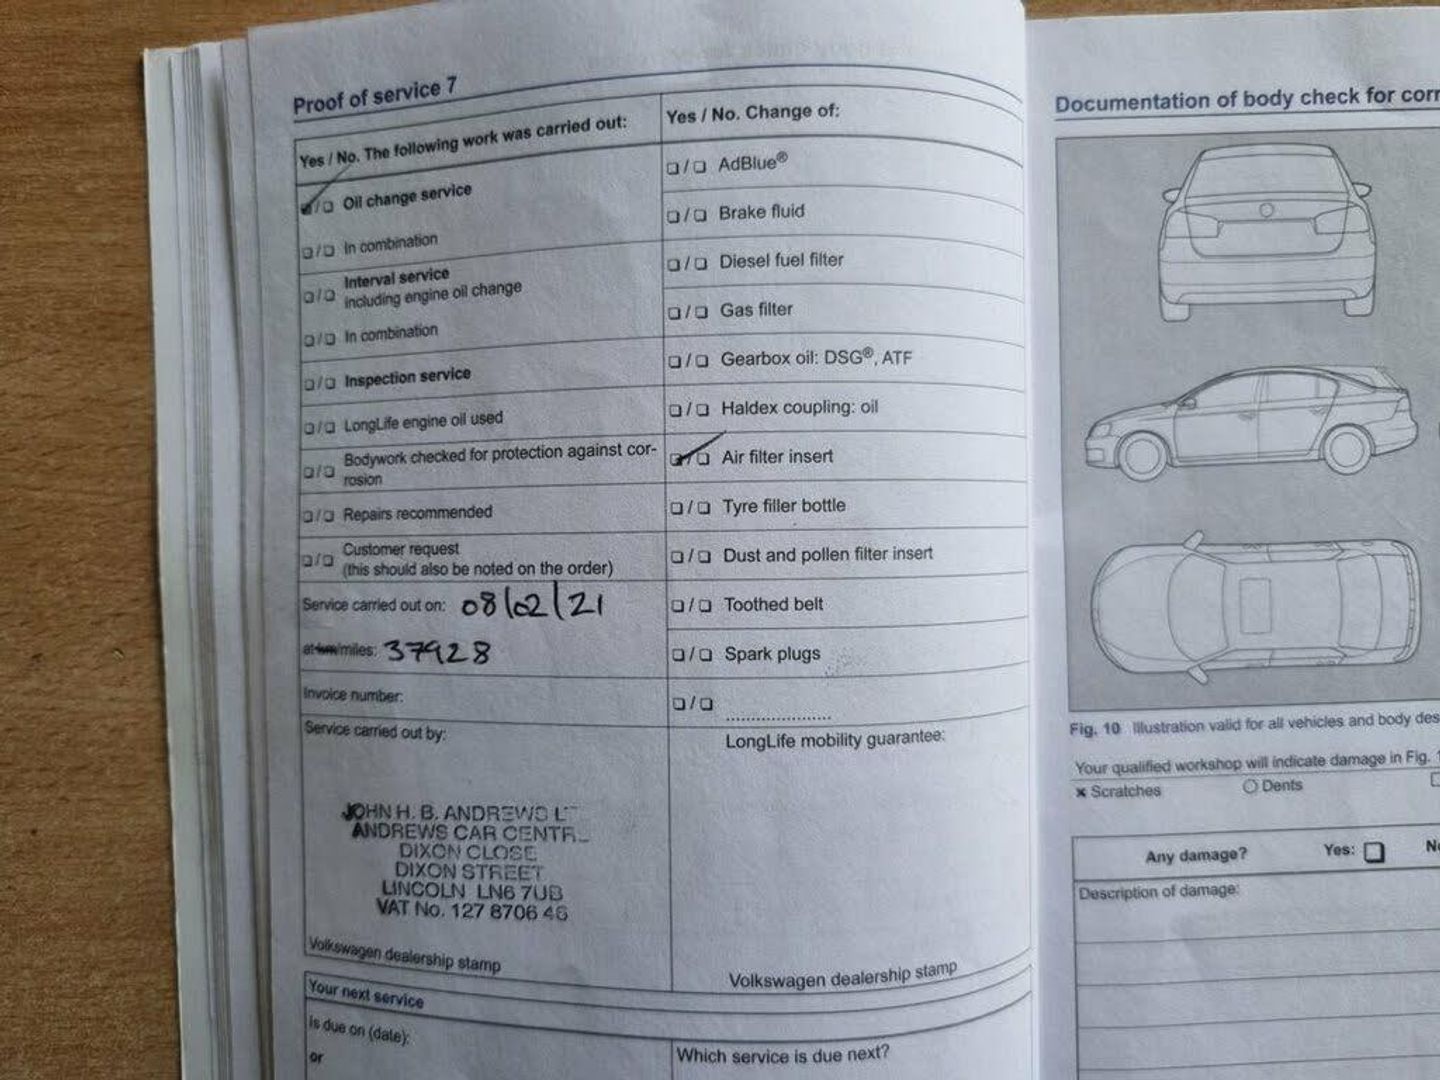 Proof of service 7
Yes / No. The following work was carried out:
☑/❑ Oil change service
❑/❑ In combination
❑/❑ Interval service
including engine oil change
❑/❑ In combination
❑/❑ Inspection service
❑/❑ LongLife engine oil used
❑/❑ Bodywork checked for protection against cor-
rosion
❑/❑ Repairs recommended
❑/❑ Customer request
(this should also be noted on the order)
Service carried out on: 08/02/21
at km/miles: 37928
Invoice number:
Service carried out by:
JOHN H. B. ANDREWS
ANDREWS CAR CENTR
DIXON CLOSE
DIXON STREET
LINCOLN LN6 7UB
VAT No. 127 8706 46
Volkswagen dealership stamp
Your next service
Is due on (date):
or
Yes / No. Change of:
❑/❑ AdBlue®
❑/❑ Brake fluid
❑/❑ Diesel fuel filter
❑/❑ Gas filter
❑/❑ Gearbox oil: DSG®, ATF
❑/❑ Haldex coupling: oil
☑/❑ Air filter insert
❑/❑ Tyre filler bottle
❑/❑ Dust and pollen filter insert
❑/❑ Toothed belt
❑/❑ Spark plugs
❑/❑ .....................
LongLife mobility guarantee:
Volkswagen dealership stamp
Which service is due next?
Documentation of body check for corr
Fig. 10 Illustration valid for all vehicles and body des
Your qualified workshop will indicate damage in Fig. 1
× Scratches ○ Dents ❑
Any damage? Yes: ❑ No
Description of damage: